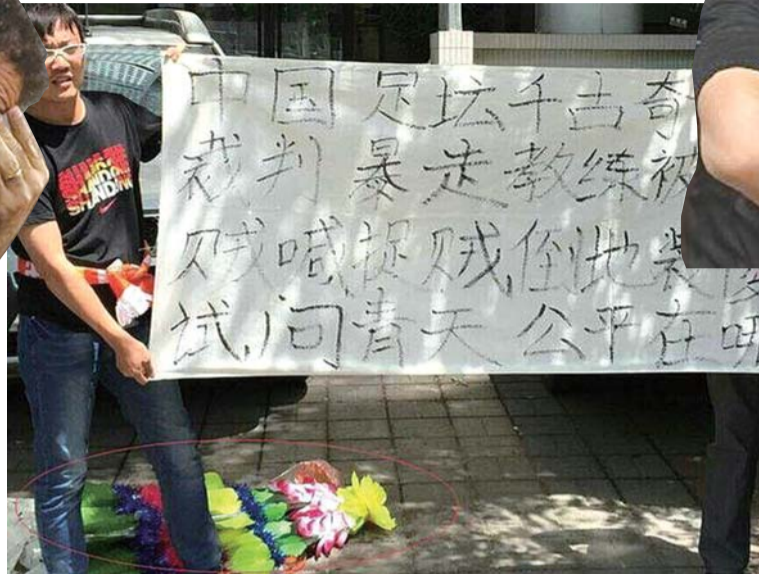 中国足坛千古奇
裁判暴走教练被
贼喊捉贼倒地装
试问青天公平在